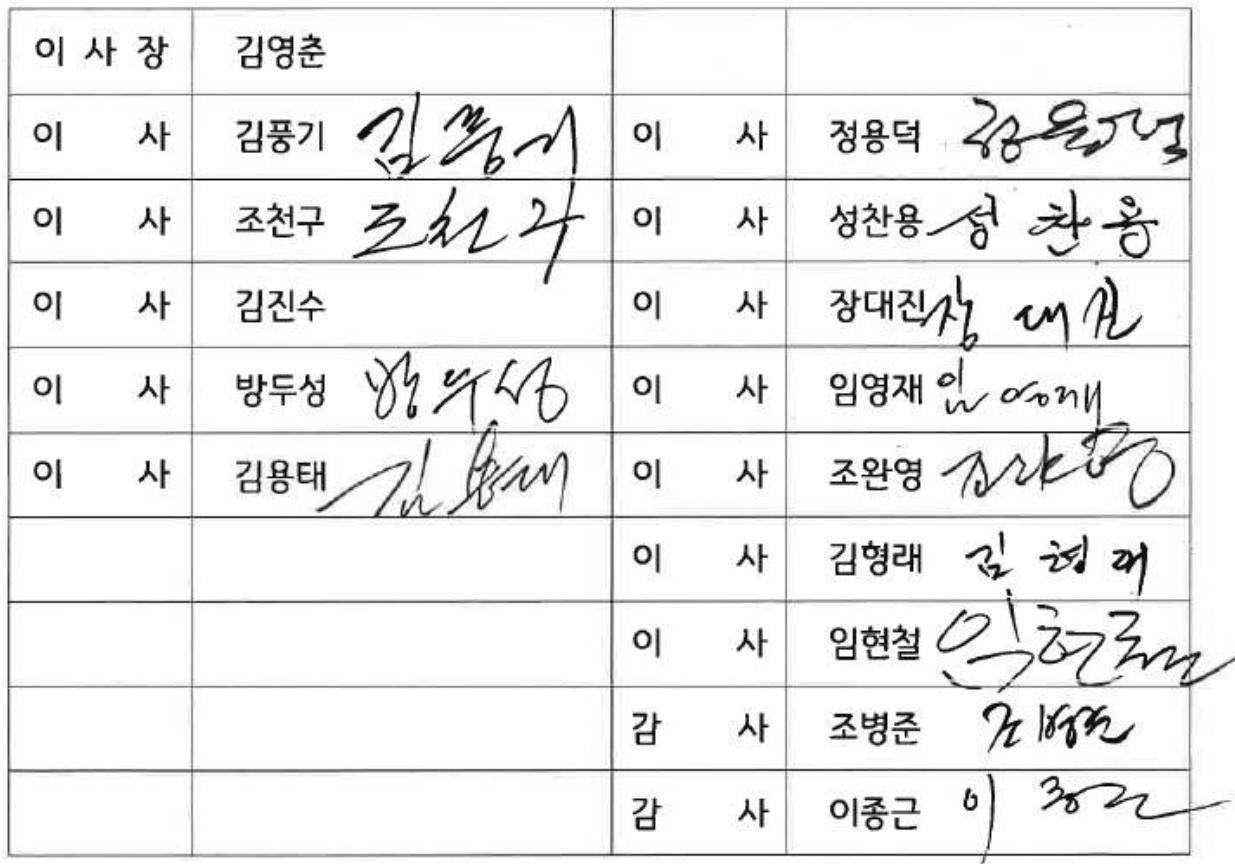 이 사 장 김영춘
이 사 김풍기 김풍기 이 사 정용덕 정용덕
이 사 조천구 조천구 이 사 성찬용 성찬용
이 사 김진수 이 사 장대진 장대진
이 사 방두성 방두성 이 사 임영재 임영재
이 사 김용태 김용태 이 사 조완영 조완영
이 사 김형래 김형래
이 사 임현철 임현철
감 사 조병준 조병준
감 사 이종근 이종근